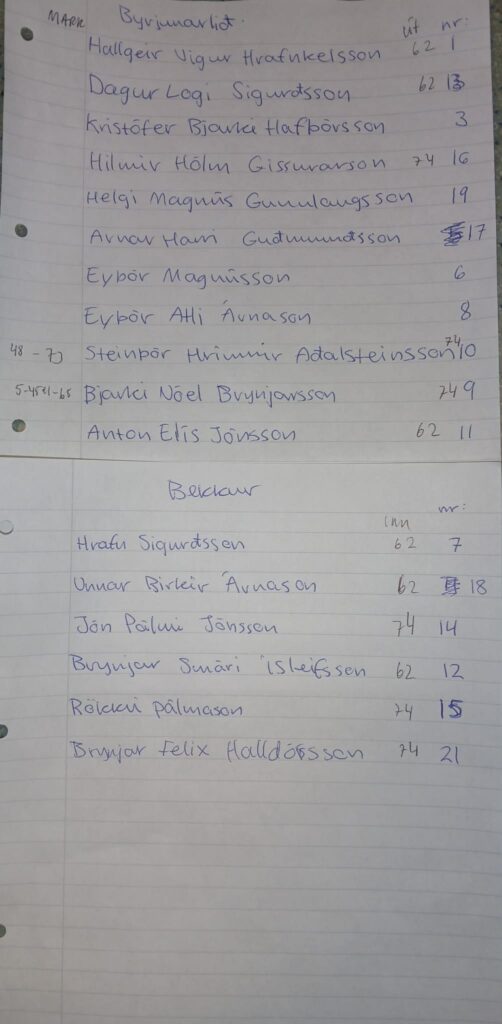 MARK Byrjunarlið. út nr:
Hallgeir Vigur Hrafnkelsson 62 1
Dagur Logi Sigurðsson 62 13
Kristófer Bjarki Hafþórsson 3
Hilmir Hólm Gissurarson 74 16
Helgi Magnús Gunnlaugsson 19
Arnar Harri Guðmundsson 17
Eyþór Magnússon 6
Eyþór Atli Árnason 8
48 - 70 Steinþór Hrímnir Aðalsteinsson 74 10
Bjarki Nóel Brynjarsson 74 9
Anton Elís Jónsson 62 11
Bekkur
inn nr:
Hrafn Sigurðsson 62 7
Unnar Birkir Árnason 62 18
Jón Pálmi Jónsson 74 14
Brynjar Smári Ísleifsson 62 12
Rökkvi Pálmason 74 15
Brynjar Felix Halldórsson 74 21